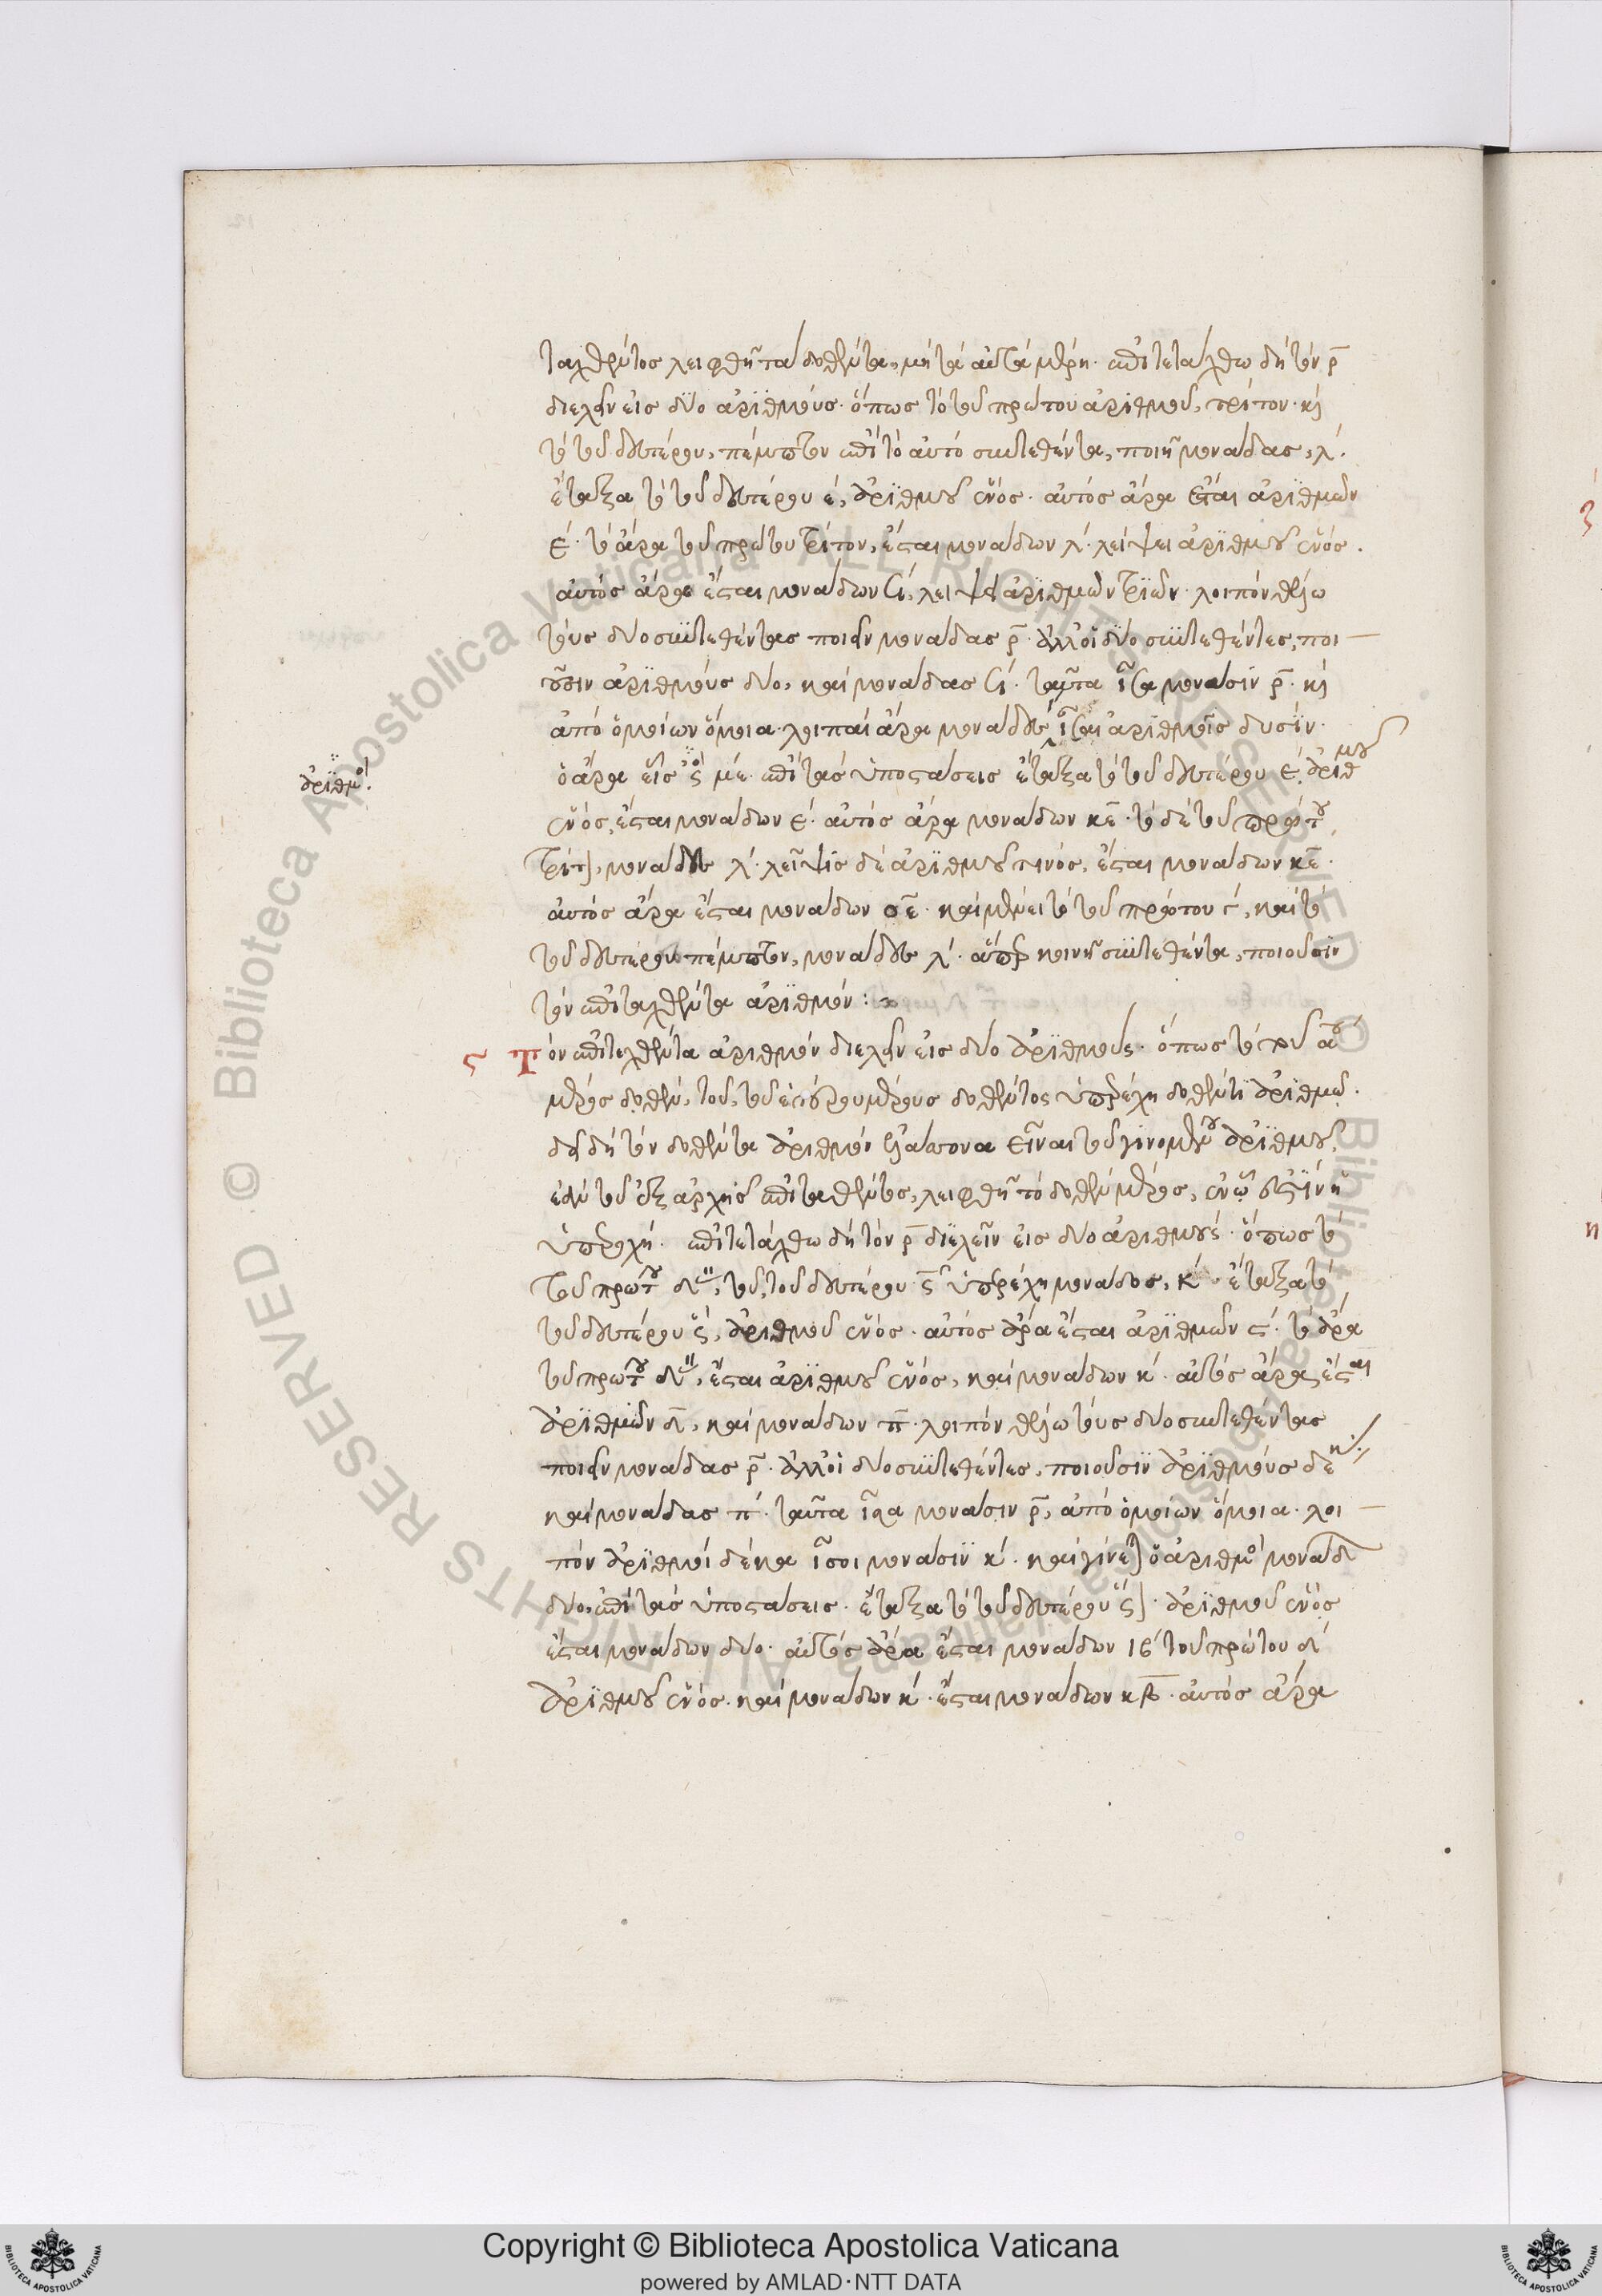 ταχθέντος λειφθῇ τὰ δοθέντα μὴ τὰ αὐτὰ μέρη. ἐπιτετάχθω δὴ τὸν ρ̄
διελεῖν εἰς δύο ἀρϊθμούς. ὅπως τὸ τοῦ πρώτου ἀριθμοῦ, τρίτον. καὶ
τὸ τοῦ δευτέρου, πέμπτον ἐπὶ τὸ αὐτὸ συντεθέντα, ποιῇ μονάδας, λ´.
ἔταξα τὸ τοῦ δευτέρου ε´, ἀρϊθμοῦ ἑνός. αὐτὸς ἄρα ἔσται ἀρϊθμῶν
ε´. τὸ ἄρα τοῦ πρώτου τρίτον, ἔσται μονάδων λ´. λείψει ἀρϊθμοῦ ἑνός.
αὐτὸς ἄρα ἔσται μονάδων ϟ´, λείψει ἀρϊθμῶν τριῶν. λοιπὸν θέλω
τοὺς δύο συντεθέντας ποιεῖν μονάδας ρ̄. ἀλλ' οἱ δύο συντεθέντες, ποι
οῦσιν ἀρϊθμοὺς δύο, καὶ μονάδας ϟ´. ταῦτα ἴσα μονάσιν ρ̄. καὶ
ἀπὸ ὁμοίων ὅμοια. λοιπαὶ ἄρα μονάδες ἴσαι ἀρϊθμοῖς δυσίν.
ὁ ἄρα εἷς ϛὸς με´. ἐπὶ τὰς ὑποστάσεις ἔταξα τὸ τοῦ δευτέρου ε´. ἀρϊθμοῦ
ἀρϊθμο´.
ἑνός, ἔσται μονάδων ε´. αὐτὸς ἄρα μονάδων κε̄. τὸ δὲ τοῦ πρώτου
τρίτον, μονάδες λ´. λεῖψις δὲ ἀρϊθμοῦ τινός, ἔσται μονάδων κε̄.
αὐτὸς ἄρα ἔσται μονάδων οε̄. καὶ μένει τὸ τοῦ πρώτου γ´, καὶ τὸ
τοῦ δευτέρου πέμπτον, μονάδες λ´. ἅπερ κοινῇ συντεθέντα, ποιοῦσϊν
τὸν ἐπιταχθέντα ἀρϊθμόν:
ϛ Τὸν ἐπιταχθέντα ἀριθμὸν διελεῖν εἰς δύο ἀρϊθμούς. ὅπως τὸ τοῦ αου
μέρος δοθέν, τοῦ, τοῦ ἑτέρου μέρους δοθέντος ὑπερέχη δοθέντϊ ἀρϊθμῷ.
δεῖ δὴ τὸν δοθέντα ἀριθμὸν ἐλάττονα εἶναι τοῦ γινομένου ἀρϊθμοῦ,
ἐὰν τοῦ ἐξ ἀρχῆς ἐπιταχθέντος, λειφθῇ τὸ δοθὲν μέρος, ἐν ᾧ ἐστὶν ἡ
ὑπεροχή. ἐπιτετάχθω δὴ τὸν ρ̄ διελεῖν εἰς δύο ἀριθμούς. ὅπως τὸ
τοῦ πρώτου δ´´, τοῦ, τοῦ δευτέρου ϛ´ ὑπερέχη μονάδος, κ´. ἔταξα τὸ
τοῦ δευτέρου ϛ´, ἀριθμοῦ ἑνός. αὐτὸς ἄρα ἔσται ἀρϊθμῶν ϛ´. τὸ ἄρα
τοῦ πρώτου δ´´, ἔσται ἀρϊθμοῦ ἑνός, καὶ μονάδων κ´. αὐτὸς ἄρα, ἔσται
ἀρϊθμῶν δ̄, καὶ μονάδων π̄. λοιπὸν θέλω τοὺς δύο συντεθέντας
ποιεῖν μονάδας ρ̄. ἀλλ' οἱ δύο συντεθέντες, ποιοῦσϊν ἀρϊθμοὺς δέκα
καὶ μονάδας π´. ταῦτα ἴσα μονάσιν ρ̄, ἀπὸ ὁμοίων ὅμοια. λοι
πὸν ἀρϊθμοὶ δέκα ἴσοι μονάσϊν κ´. καὶ γίνεται ὁ ἀριθμὸ μονάδ
δύο, ἐπὶ τὰς ὑποστάσεις. ἔταξα τὸ τοῦ δευτέρου ϛον. ἀρϊθμοῦ ἑνὸς
ἔσται μονάδων δύο. αὐτὸς ἄρα ἔσται μονάδων ιβ´ τοῦ πρώτου δ´
ἀρϊθμοῦ ἑνός. καὶ μονάδων κ´. ἔσται μονάδων κβ̄. αὐτὸς ἄρα
Copyright © Biblioteca Apostolica Vaticana
powered by AMLAD·NTT DATA